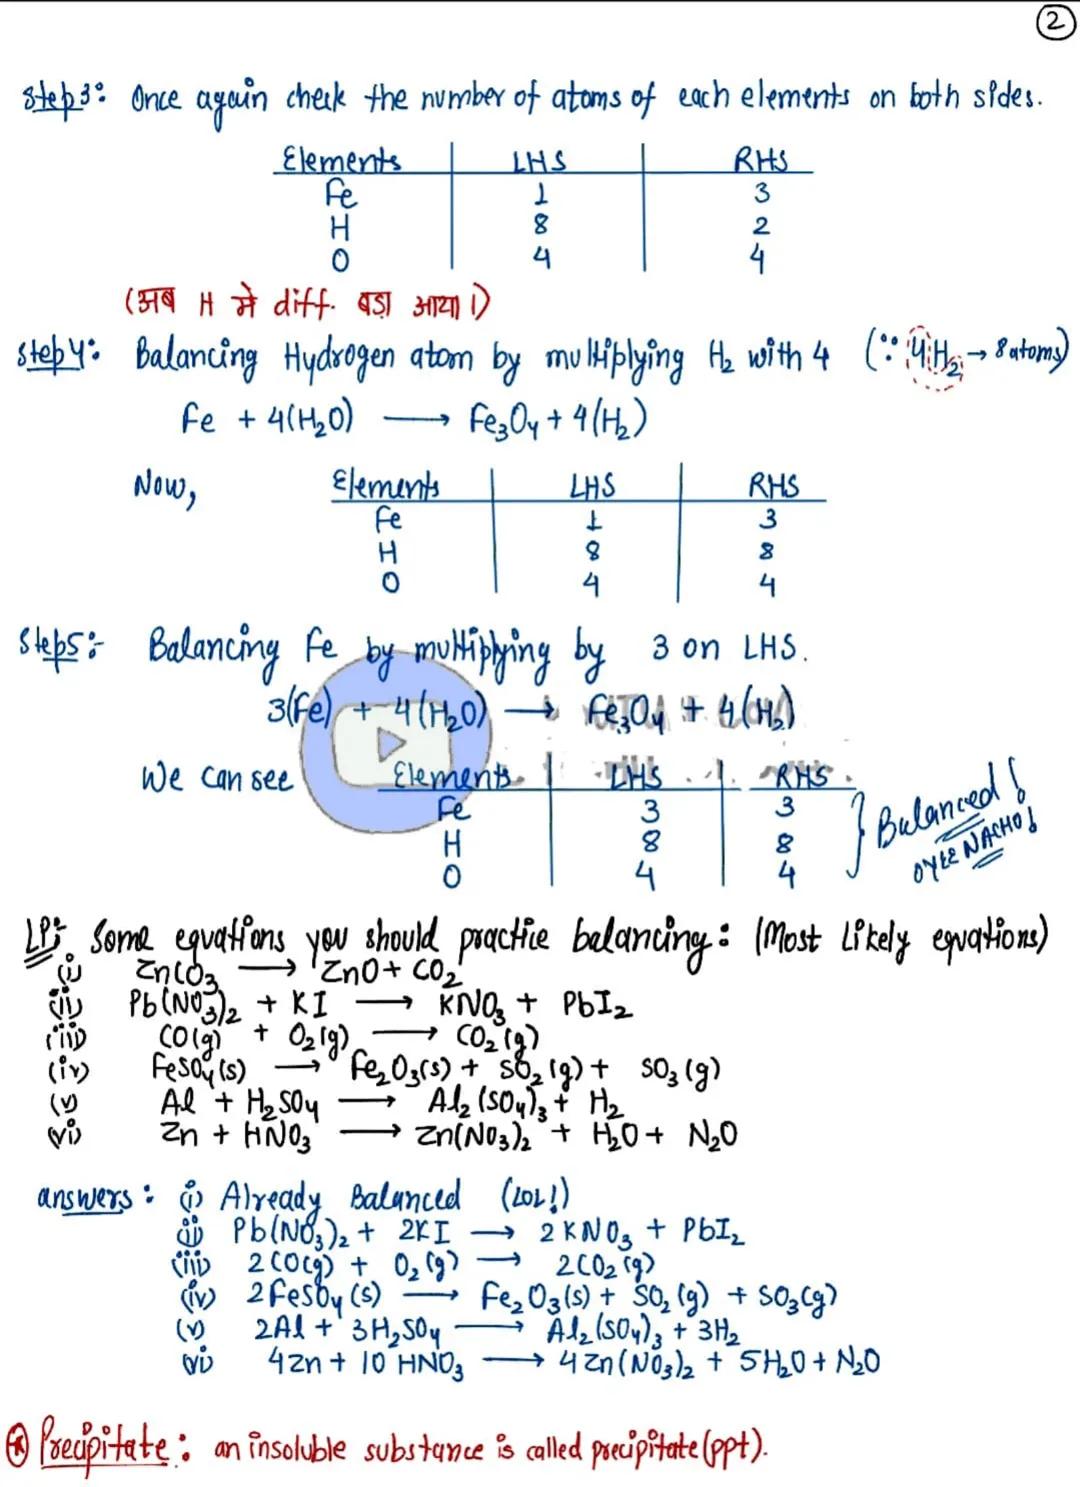 2
Step3: Once again check the number of atoms of each elements on both sides.
Elements LHS RHS
Fe 1 3
H 8 2
O 4 4
(अब H मे diff. बड़ा आया।)
Step4: Balancing Hydrogen atom by multiplying H₂ with 4 (∵ 4H₂ → 8 atoms)
Fe + 4(H₂O) → Fe₃O₄ + 4(H₂)
Now, Elements LHS RHS
Fe 1 3
H 8 8
O 4 4
Step5:- Balancing Fe by multiplying by 3 on LHS.
3(Fe) + 4(H₂O) → Fe₃O₄ + 4(H₂)
We can see Elements LHS RHS
Fe 3 3
H 8 8
O 4 4
} Balanced!
OYEE NACHO!
LP:- Some equations you should practice balancing: (Most Likely equations)
(i) ZnCO₃ → ZnO + CO₂
(ii) Pb(NO₃)₂ + KI → KNO₃ + PbI₂
(iii) CO(g) + O₂(g) → CO₂(g)
(iv) FeSO₄(s) → Fe₂O₃(s) + SO₂(g) + SO₃(g)
(v) Al + H₂SO₄ → Al₂(SO₄)₃ + H₂
(vi) Zn + HNO₃ → Zn(NO₃)₂ + H₂O + N₂O
answers: (i) Already Balanced (LOL!)
(ii) Pb(NO₃)₂ + 2KI → 2KNO₃ + PbI₂
(iii) 2CO(g) + O₂(g) → 2CO₂(g)
(iv) 2FeSO₄(s) → Fe₂O₃(s) + SO₂(g) + SO₃(g)
(v) 2Al + 3H₂SO₄ → Al₂(SO₄)₃ + 3H₂
(vi) 4Zn + 10HNO₃ → 4Zn(NO₃)₂ + 5H₂O + N₂O
* Precipitate: an insoluble substance is called precipitate (ppt).